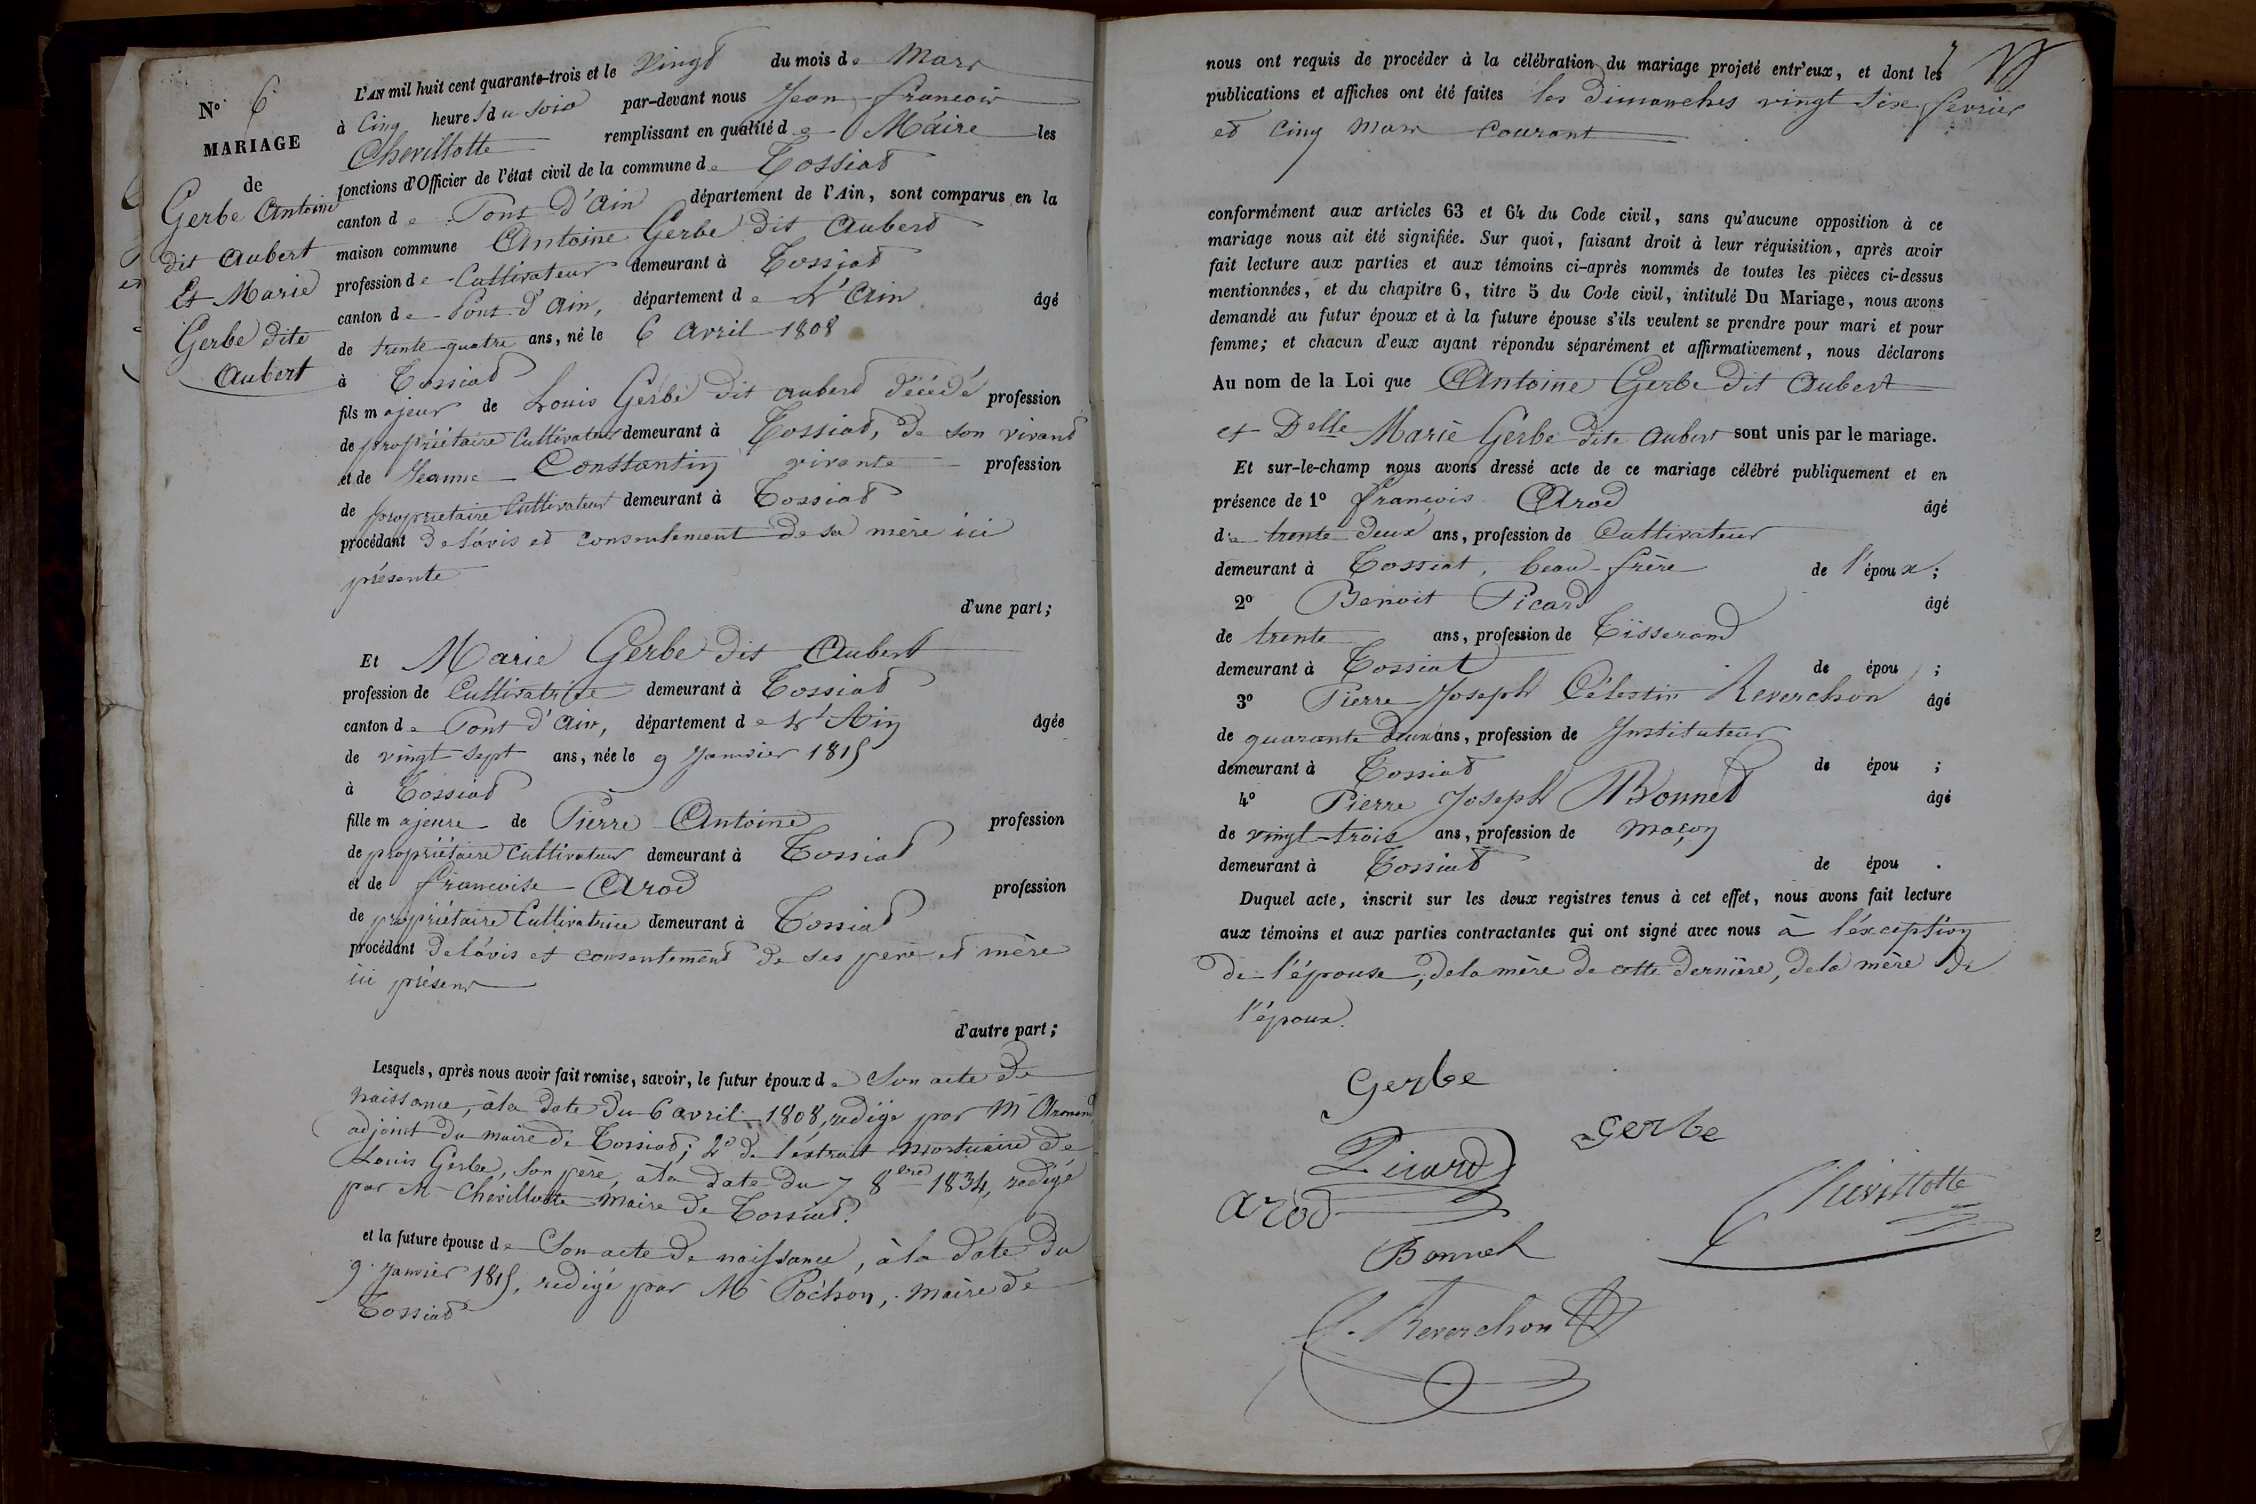 N° 6
MARIAGE
de
Gerbe Antoine
dit Aubert
Et Marie
Gerbe dite
Aubert
L'AN mil huit cent quarante-trois et le vingt du mois de Mars
à Cinq heures du Soir par-devant nous Jean françois
Chevillotte remplissant en qualité de Maire les
fonctions d'Officier de l'état civil de la commune de Tossiat
canton de Pont d'Ain département de l'Ain, sont comparus en la
maison commune Antoine Gerbe dit Aubert
profession de Cultivateur demeurant à Tossiat
canton de Pont d'Ain, département de L'Ain âgé
de trente quatre ans, né le 6 avril 1808
à Tossiat
fils majeur de Louis Gerbe dit aubert décédé profession
de propriétaire Cultivateur demeurant à Tossiat, de son vivant
et de Jeanne Constantin vivante profession
de propriétaire Cultivateur demeurant à Tossiat
procédant de l'avis et consentement de sa mère ici
présente
d'une part;
Et Marie Gerbe dit Aubert
profession de Cultivatrice demeurant à Tossiat
canton de Pont d'Ain, département de L'Ain âgée
de vingt sept ans, née le 9 Janvier 1815
à Tossiat
fille majeure de Pierre Antoine profession
de propriétaire Cultivateur demeurant à Tossiat
et de françoise Arod profession
de propriétaire Cultivatrice demeurant à Tossiat
procédant de l'avis et consentement de ses père et mère
ici présens
d'autre part;
Lesquels, après nous avoir fait remise, savoir, le futur époux de Son acte de
naissance, à la date du 6 avril 1808, redigé par Mr
adjoint du maire de Tossiat; 2° de l'extrait mortuaire de
Louis Gerbe, son père, à la date du 7 8bre 1834, redigé
par Mr Chevillotte Maire de Tossiat.
et la future épouse de Son acte de naissance, à la date du
9 Janvier 1815, redigé par Mr Pochon, maire de
Tossiat
nous ont requis de procéder à la célébration du mariage projeté entr'eux, et dont les
publications et affiches ont été faites les dimanches vingt six fevrier
et cinq Mars courant
conformément aux articles 63 et 64 du Code civil, sans qu'aucune opposition à ce
mariage nous ait été signifiée. Sur quoi, faisant droit à leur réquisition, après avoir
fait lecture aux parties et aux témoins ci-après nommés de toutes les pièces ci-dessus
mentionnées, et du chapitre 6, titre 5 du Code civil, intitulé Du Mariage, nous avons
demandé au futur époux et à la future épouse s'ils veulent se prendre pour mari et pour
femme; et chacun d'eux ayant répondu séparément et affirmativement, nous déclarons
Au nom de la Loi que Antoine Gerbe dit Aubert
et Delle Marie Gerbe dite Aubert sont unis par le mariage.
Et sur-le-champ nous avons dressé acte de ce mariage célébré publiquement et en
présence de 1° françois Arod âgé
de trente deux ans, profession de Cultivateur
demeurant à Tossiat, beau-frère de l'époux;
2° Benoit Picard âgé
de trente ans, profession de Tisserand
demeurant à Tossiat de épou ;
3° Pierre Joseph Célestin Reverchon âgé
de quarante deux ans, profession de Instituteur
demeurant à Tossiat de épou ;
4° Pierre Joseph Bonnet âgé
de vingt-trois ans, profession de maçon
demeurant à Tossiat de épou .
Duquel acte, inscrit sur les deux registres tenus à cet effet, nous avons fait lecture
aux témoins et aux parties contractantes qui ont signé avec nous à l'exception
de l'épouse, de la mère de cette dernière, de la mère de
l'époux.
Gerbe
Gerbe
Picard
Chevillotte
Arod
Bonnet
Reverchon